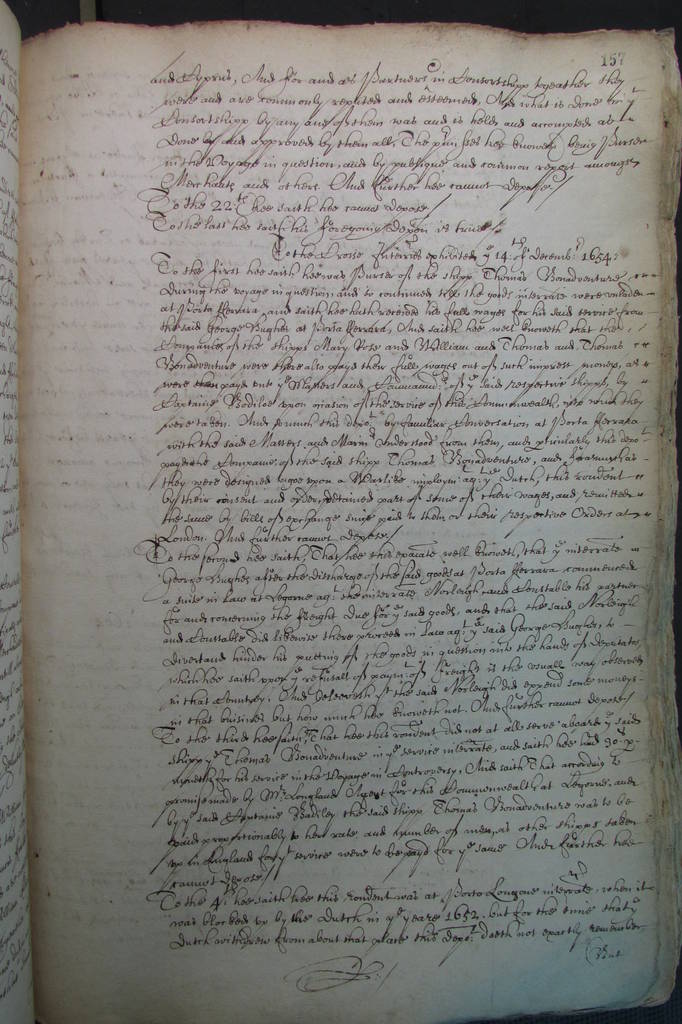 157
and Cyprus, And for and as Partners in Consortshipp togeather they
were and are commonly reputed and esteemed, And what is done by
Consortshipp by any one of them was and is held and accompted as
done by and approved by them all, The premisses hee knoweth being Purser
in the Voyage in question, and by publique and common report amongst
Merchants and others. And further hee cannot depose./
To the 22:th hee saith hee cannot depose./
To the last hee saith his foregoing deposn is true./
To the Crosse Interries exhibited ye 14:th of Decembr 1654:
To the first hee saith hee was Purser of the shipp Thomas Bonadventure
during the voyage in question, and so continued till the goods interrate were unladen
at Porto Ferrara, and saith hee hath received his full wages for his said service from
the said George Hughes at Porto Ferrara, And saith hee well knoweth that the
Companies of the shipps Mary Rose and William and Thomas and Thomas
Bonadventure were there also payd their full wages out of such imprest money, as
were payd unto ye Masters and of ye said respective shipps, by
Captaine Bodiloe upon of the service of this Commonwealth, into which they
were taken. And so much this depot by familiar Conversation at Porto Ferrara
with the said Masters and Marinrs understood from them, and perticularly this depot
payd the Companie of the said shipp Thomas Bonadventure, and forasmuch as
they were designed to goe upon a Warlike imploymt agt ye Dutch, this rendent
by their consent and order, detained part of some of their wages, and remitted
the same by bills of exchange since paid to them or their respective Orders at
London. And further cannot depose./
To the second hee saith, That hee this examate well knoweth, that ye interrate
George Hughes after the discharge of the said goods at Porto Ferrara commenced
a suite in Law at Legorne agt the interrate Norleigh and Constable his partner
for and concerning the freight due for ye said goods, and that the said Norleigh
and Constable did likewise there proceed in law agt ye said George Hughes, to
divert and hinder his putting of the goods in question into the hands of
which hee saith upon ye refusall of paymt of freight is the usuall way observed
in that Countrey. And beleeveth yt the said Norleigh did expend some moneys
in that businesse but how much hee knoweth not. And further cannot depose./
To the third hee saith, That hee this rendent did not at all serve aboard ye said
shipp ye Thomas Bonadventure in ye service interrate, and saith hee had 30s p
moneth for his service in the Voyage in Controversy. And saith That according to
promise made by Mr Longland Agent for this Commonwealth at Legorne, and
by ye said Captaine Badiley the said shipp Thomas Bonadventure was to be
paid proportionably to her rate and number of men, as other shipps taken
up in England for ye service were to be payd for ye same And further hee
cannot depose./
To the 4:th hee saith hee this rendent was at Porto Longone interrate, when it
was blocked up by the Dutch in ye yeare 1652, but for the time that ye
Dutch withdrew from about that place this depot doeth not exactly remember
But